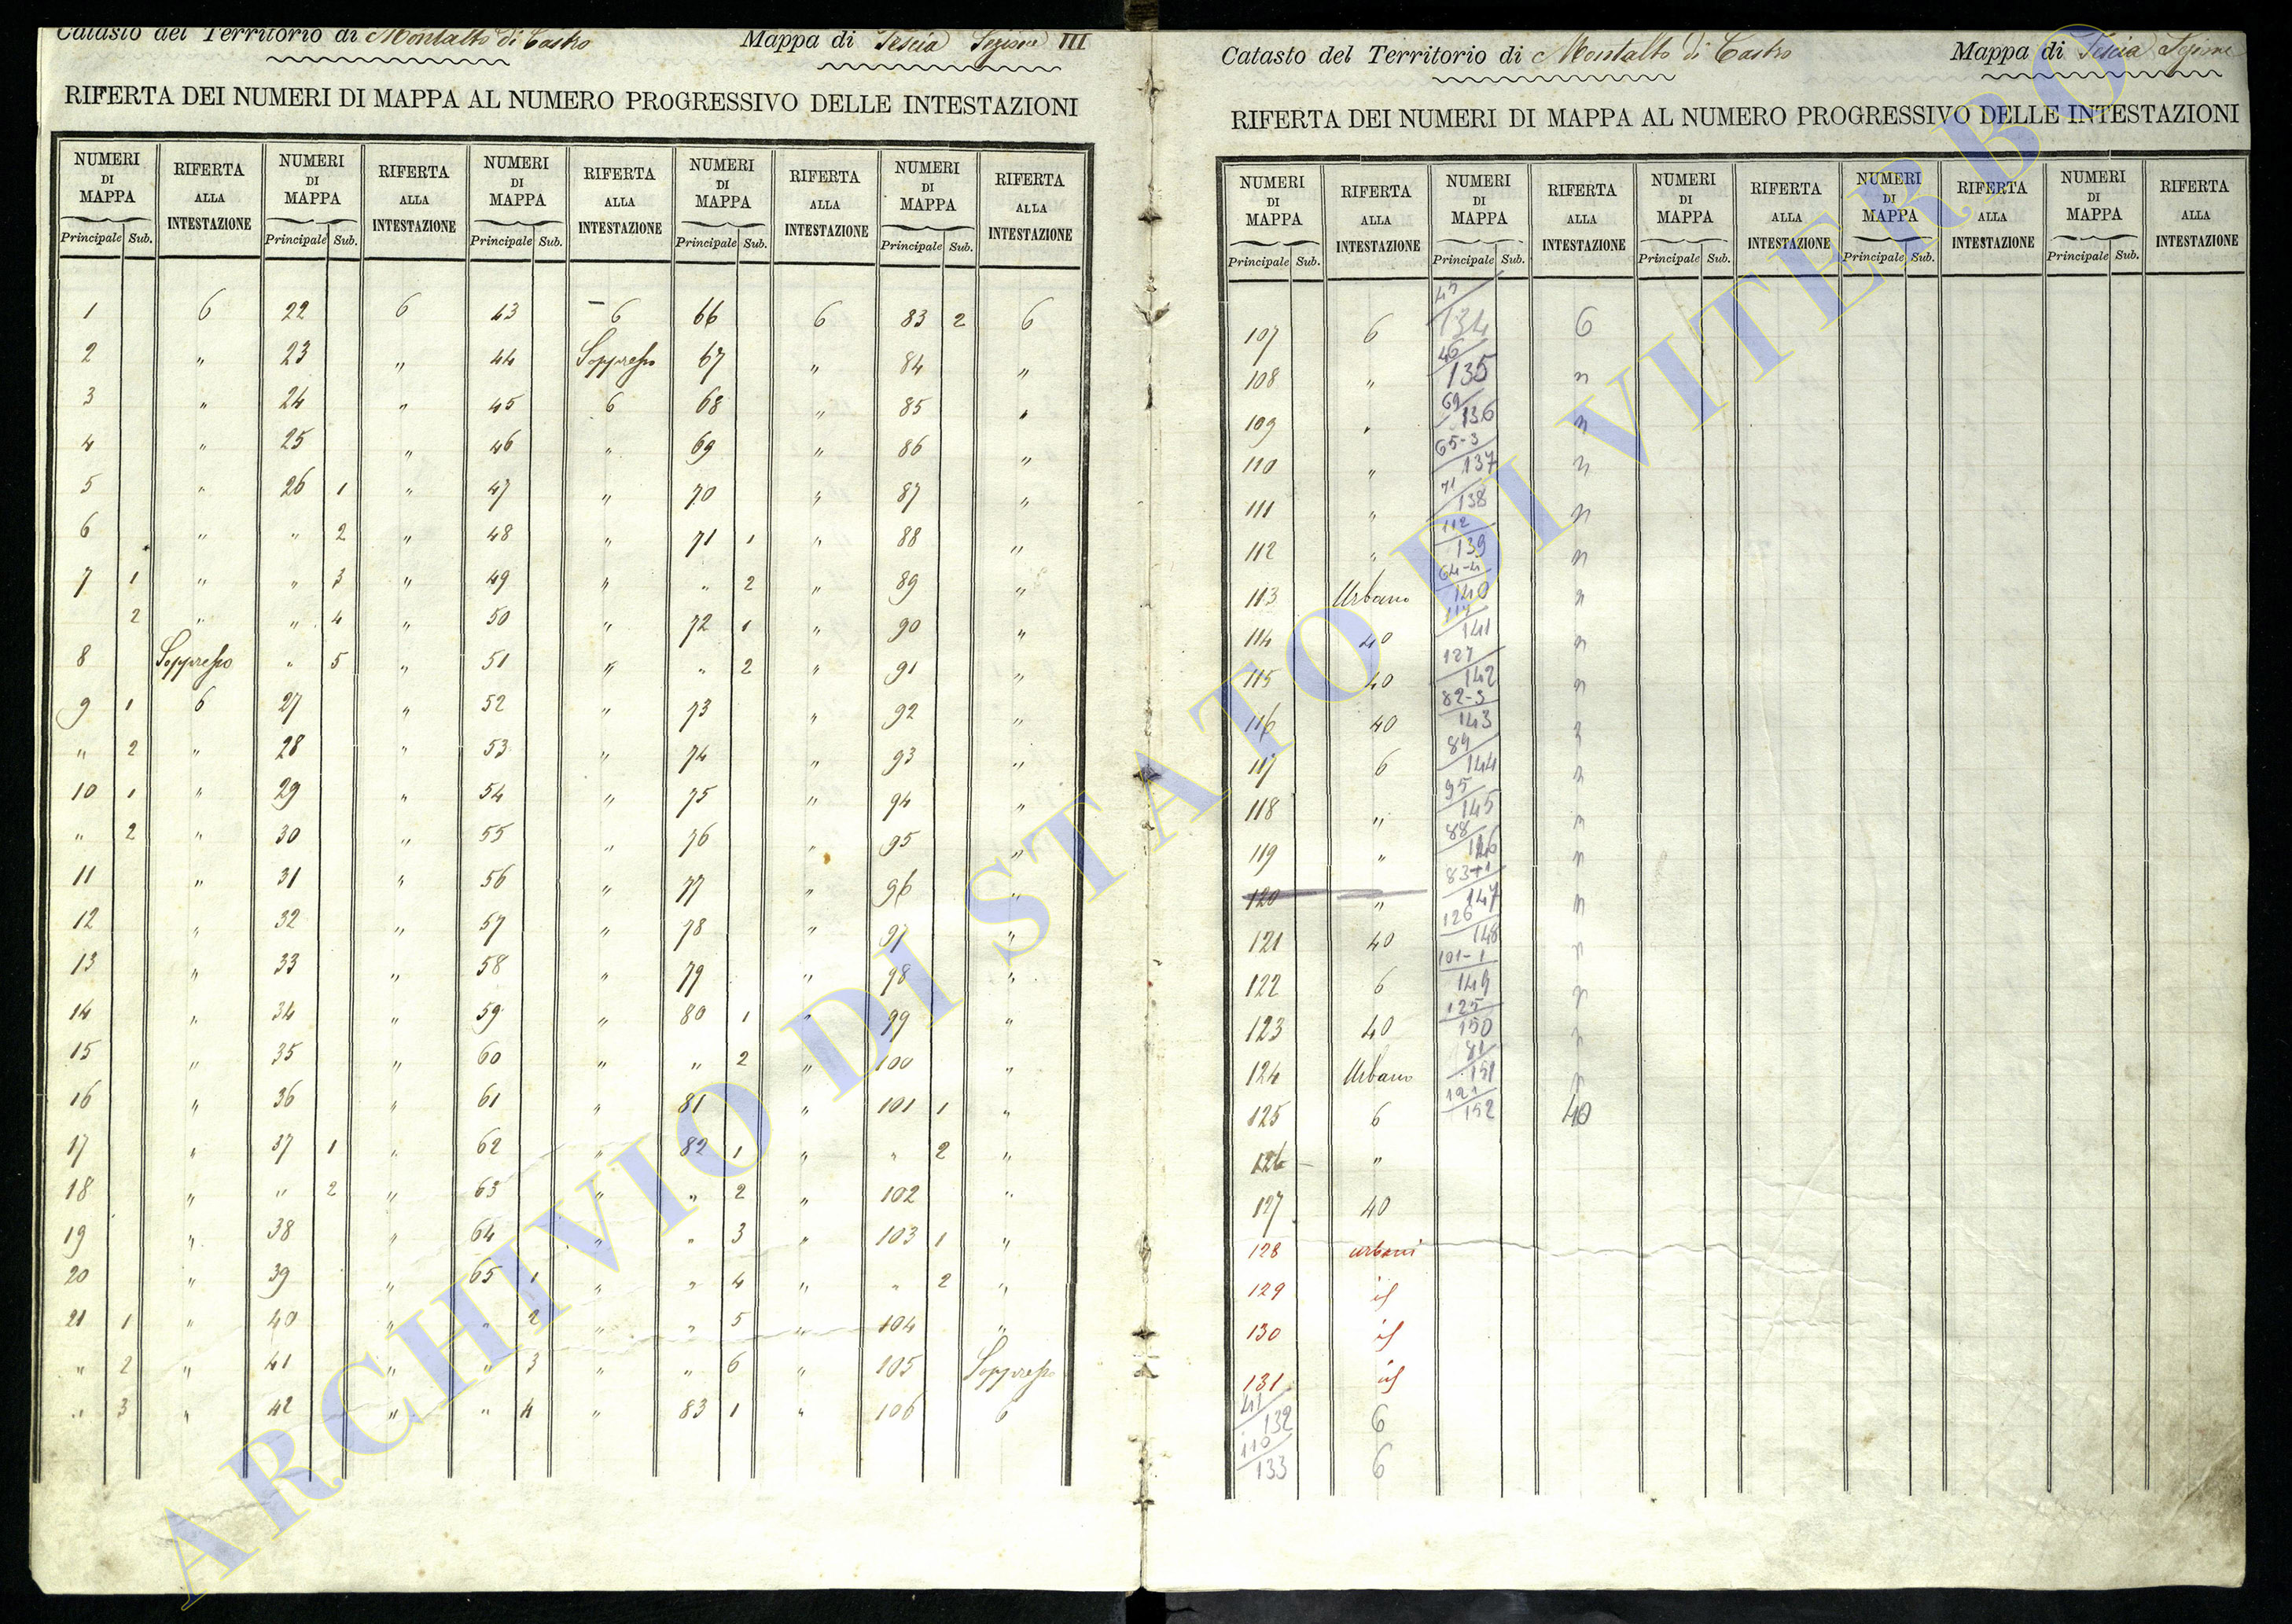 Catasto del Territorio di Montalto di Castro Mappa di Tescia Sezione III
RIFERTA DEI NUMERI DI MAPPA AL NUMERO PROGRESSIVO DELLE INTESTAZIONI
NUMERI DI MAPPA RIFERTA ALLA INTESTAZIONE NUMERI DI MAPPA RIFERTA ALLA INTESTAZIONE NUMERI DI MAPPA RIFERTA ALLA INTESTAZIONE NUMERI DI MAPPA RIFERTA ALLA INTESTAZIONE NUMERI DI MAPPA RIFERTA ALLA INTESTAZIONE
Principale Sub. Principale Sub. Principale Sub. Principale Sub. Principale Sub.
1 6 22 6 43 – 6 66 6 83 2 6
2 " 23 " 44 Soppresso 67 " 84 "
3 " 24 " 45 6 68 " 85 "
4 " 25 " 46 " 69 " 86 "
5 " 26 1 " 47 " 70 " 87 "
6 " " 2 " 48 " 71 1 " 88 "
7 1 " " 3 " 49 " " 2 " 89 "
2 " " 4 " 50 " 72 1 " 90 "
8 Soppresso " 5 " 51 " " 2 " 91 "
9 1 6 27 " 52 " 73 " 92 "
" 2 " 28 " 53 " 74 " 93 "
10 1 " 29 " 54 " 75 " 94 "
" 2 " 30 " 55 " 76 " 95 "
11 " 31 " 56 " 77 " 96 "
12 " 32 " 57 " 78 " 97 "
13 " 33 " 58 " 79 " 98 "
14 " 34 " 59 " 80 1 " 99 "
15 " 35 " 60 " " 2 " 100 "
16 " 36 " 61 " 81 " 101 1 "
17 " 37 1 " 62 " 82 1 " " 2 "
18 " " 2 " 63 " " 2 " 102 "
19 " 38 " 64 " " 3 " 103 1 "
20 " 39 " 65 1 " " 4 " " 2 "
21 1 " 40 " " 2 " " 5 " 104 "
" 2 " 41 " " 3 " " 6 " 105 Soppresso
" 3 " 42 " " 4 " 83 1 " 106 6
Catasto del Territorio di Montalto di Castro Mappa di Tescia Sezione
RIFERTA DEI NUMERI DI MAPPA AL NUMERO PROGRESSIVO DELLE INTESTAZIONI
NUMERI DI MAPPA RIFERTA ALLA INTESTAZIONE NUMERI DI MAPPA RIFERTA ALLA INTESTAZIONE NUMERI DI MAPPA RIFERTA ALLA INTESTAZIONE NUMERI DI MAPPA RIFERTA ALLA INTESTAZIONE NUMERI DI MAPPA RIFERTA ALLA INTESTAZIONE
Principale Sub. Principale Sub. Principale Sub. Principale Sub. Principale Sub.
107 6 45/134 6
108 " 46/135 "
109 " 69/136 "
110 " 65-3/137 "
111 " 71/138 "
112 " 112/139 "
113 Urbano 64-4/140 "
114 40 117/141 "
115 40 127/142 "
116 40 82-3/143 "
117 6 89/144 "
118 " 95/145 "
119 " 88/146 "
120 " 83+1/147 "
121 40 126/148 "
122 6 101-1/149 "
123 40 125/150 "
124 Urbano 81/151 "
125 6 121/152 40
126 "
127 40
128 urbani
129 id
130 id
131 id
41/132 6
110/133 6
ARCHIVIO DI STATO DI VITERBO